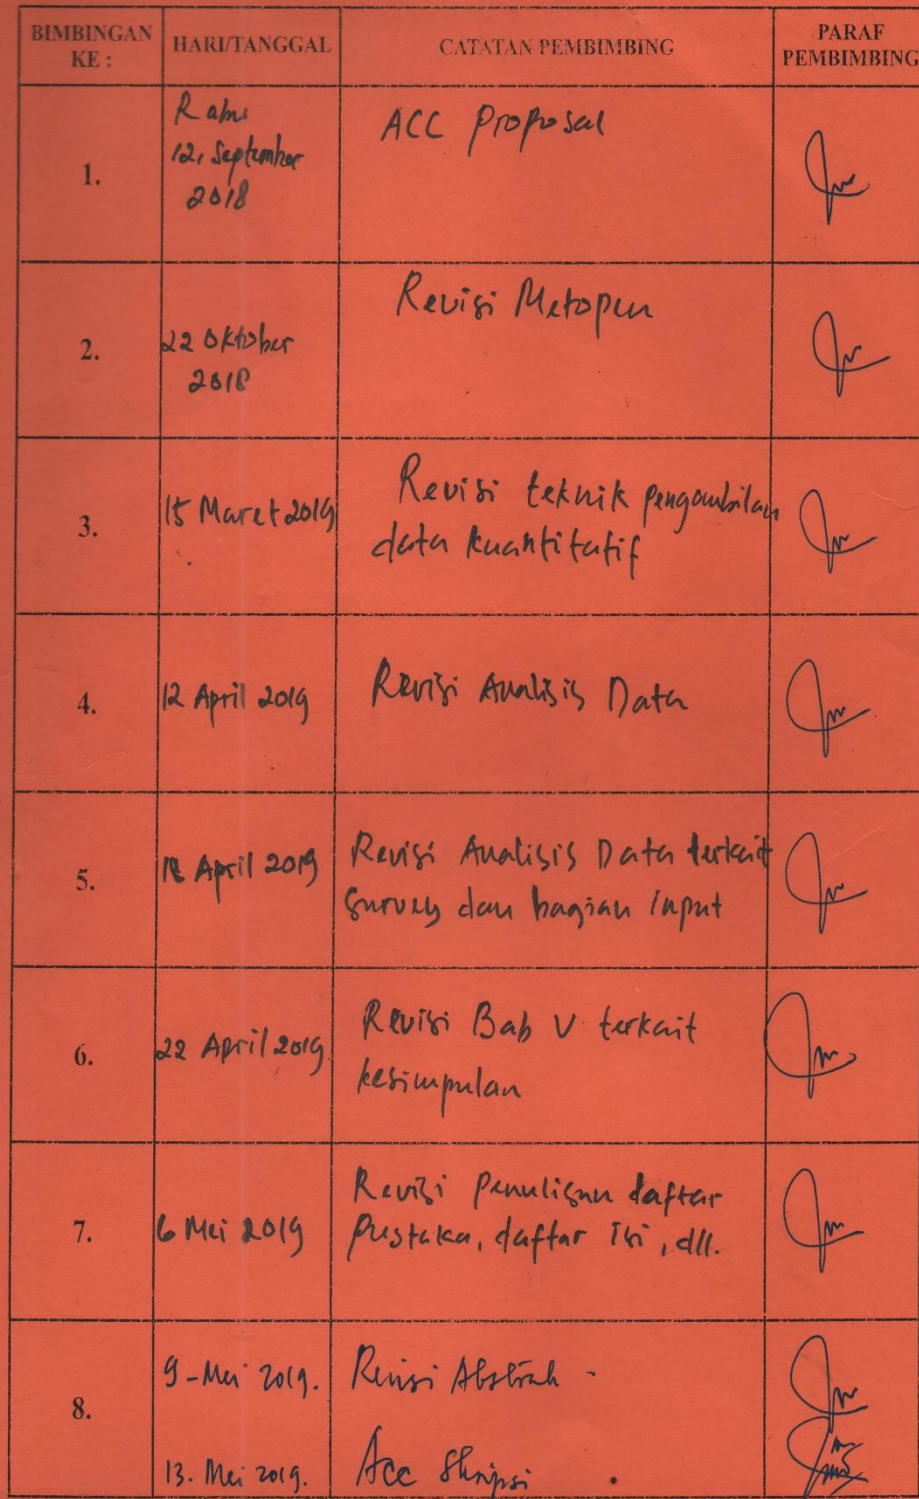 BIMBINGAN KE : HARI/TANGGAL CATATAN PEMBIMBING PARAF PEMBIMBING
1.
Rabu
12, September
2018
ACC Proposal
2.
22 Oktober
2018
Revisi Metopen
3.
15 Maret 2019
Revisi teknik pengambilan
data kuantitatif
4.
12 April 2019
Revisi Analisis Data
5.
18 April 2019
Revisi Analisis Data terkait
survey dan bagian input
6.
22 April 2019
Revisi Bab V terkait
kesimpulan
7.
6 Mei 2019
Revisi Penulisan daftar
Pustaka, daftar isi, dll.
8.
9-Mei 2019.
Revisi Abstrak -
13. Mei 2019.
Acc Skripsi